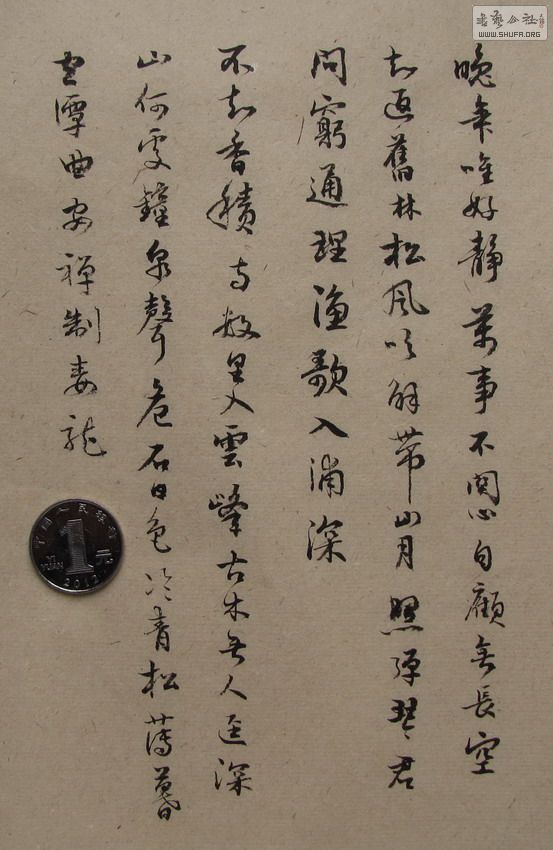 書藝公社
WWW.SHUFA.ORG
晚年唯好静萬事不関心自顧無長空
知返舊林松風吹解帶山月照弹琴君
問窮通理漁歌入浦深
不知香積寺数里入雲峰古木無人逕深
山何處鐘泉聲危石日色冷青松薄暮
空潭曲安禅制毒龍
中国人民银行
1元
YI YUAN
2012